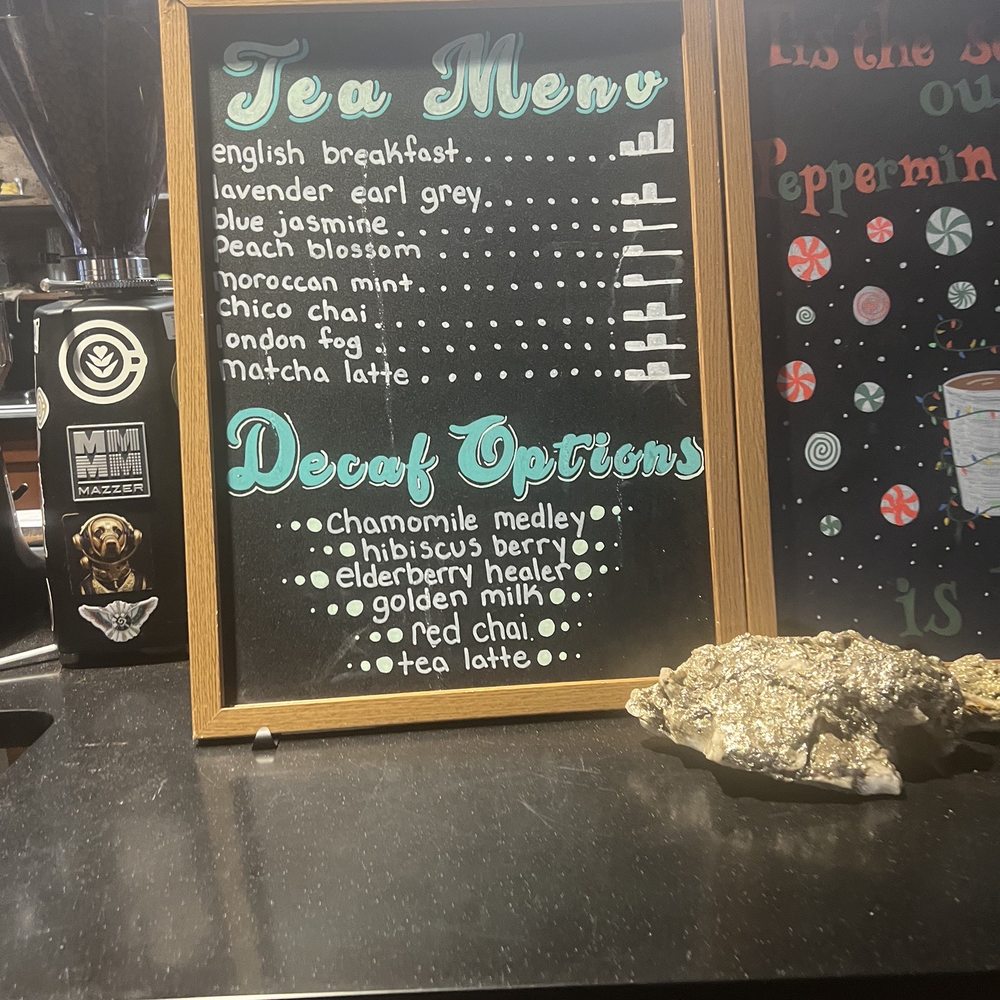 Tea Menu
english breakfast..........
lavender earl grey.........
blue jasmine..............
peach blossom
moroccan mint............
chico chai...............
london fog...............
matcha latte..........
Decaf Options
Chamomile medley
hibiscus berry
elderberry healer
golden milk
red chai
tea latte
MAZZER
'tis the
Peppermin
is